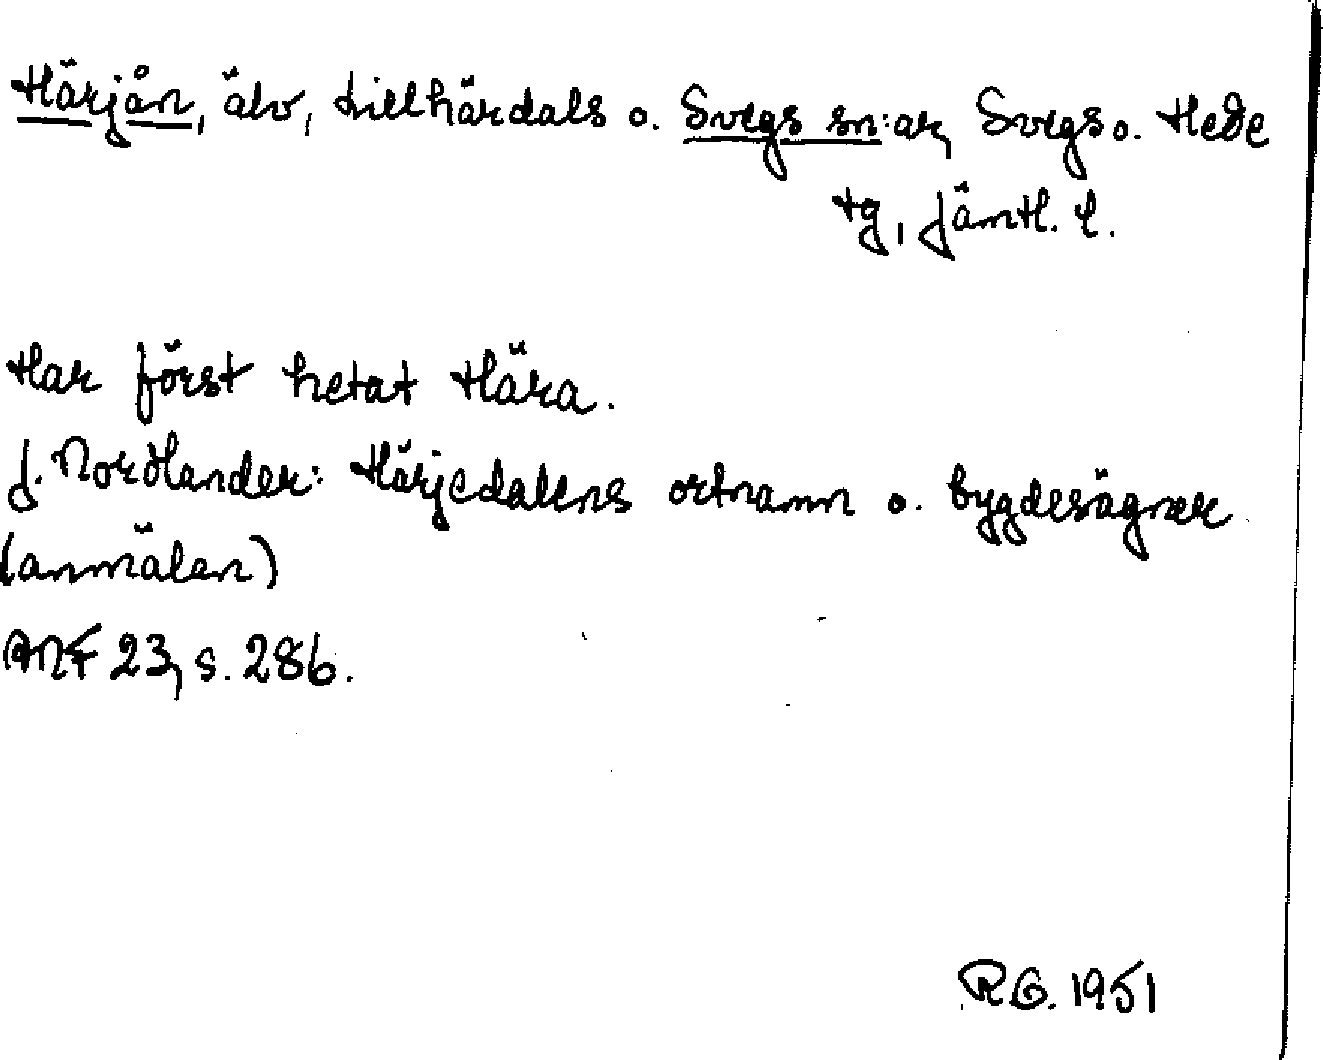 Härjån, älv, Lillhärdals o. Svegs sn:ar, Svegs o. Hede
tg, Jämtl. l.
Har först hetat Hära.
J. Nordlander: Härjedalens ortnamn o. bygdesägner
(anmälan)
ANF 23, s. 286.
R.G. 1951